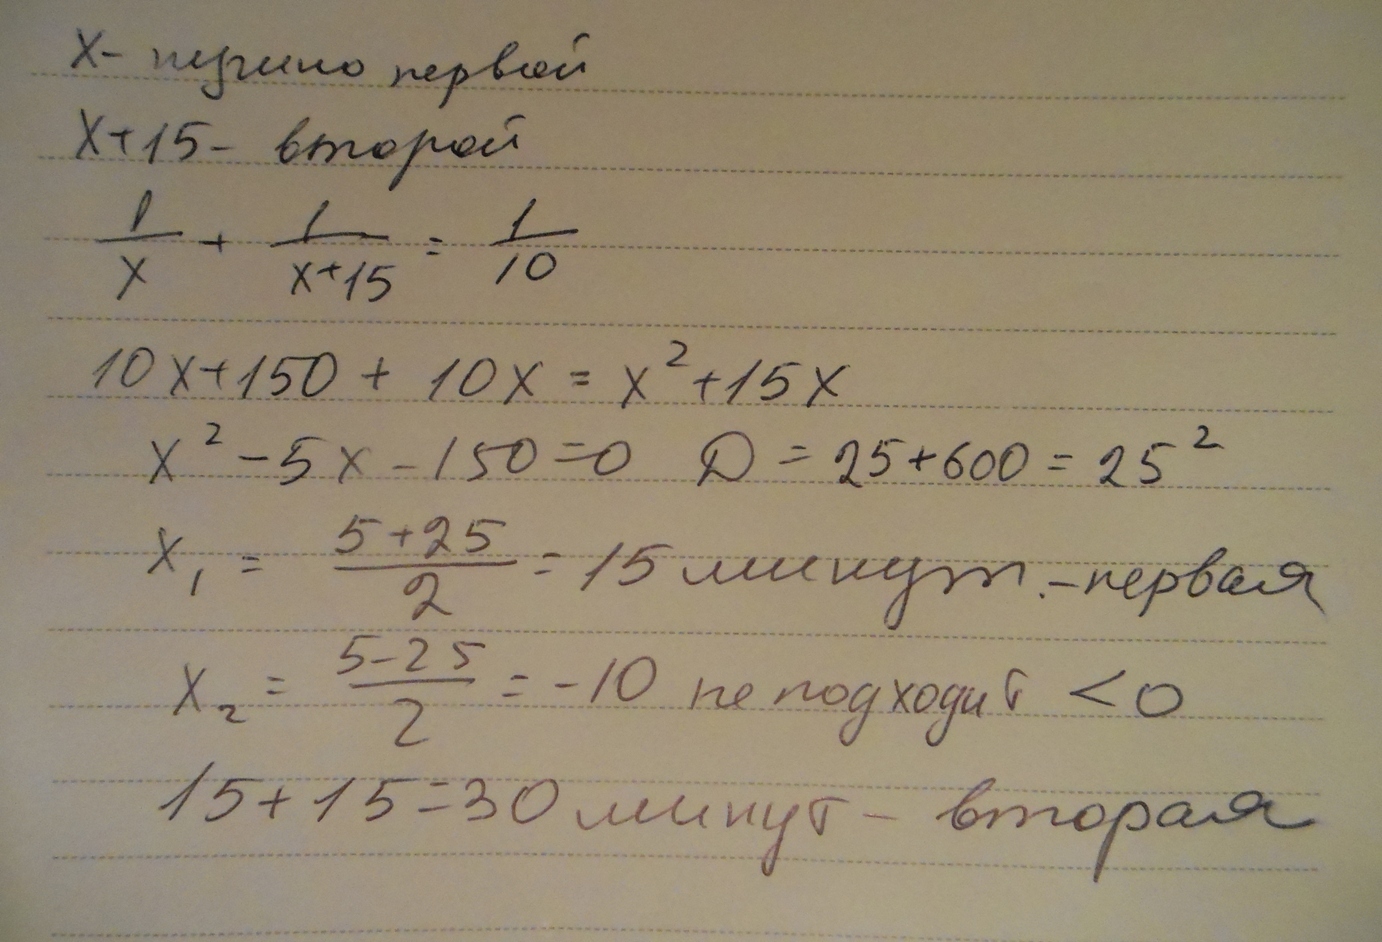 х - нужно первой
х+15 - второй
1/х + 1/(х+15) = 1/10
10х+150 + 10х = х²+15х
х² - 5х - 150 = 0 D = 25+600 = 25²
х₁ = (5+25)/2 = 15 минут. - первая
х₂ = (5-25)/2 = -10 не подходит < 0
15+15=30 минут - вторая